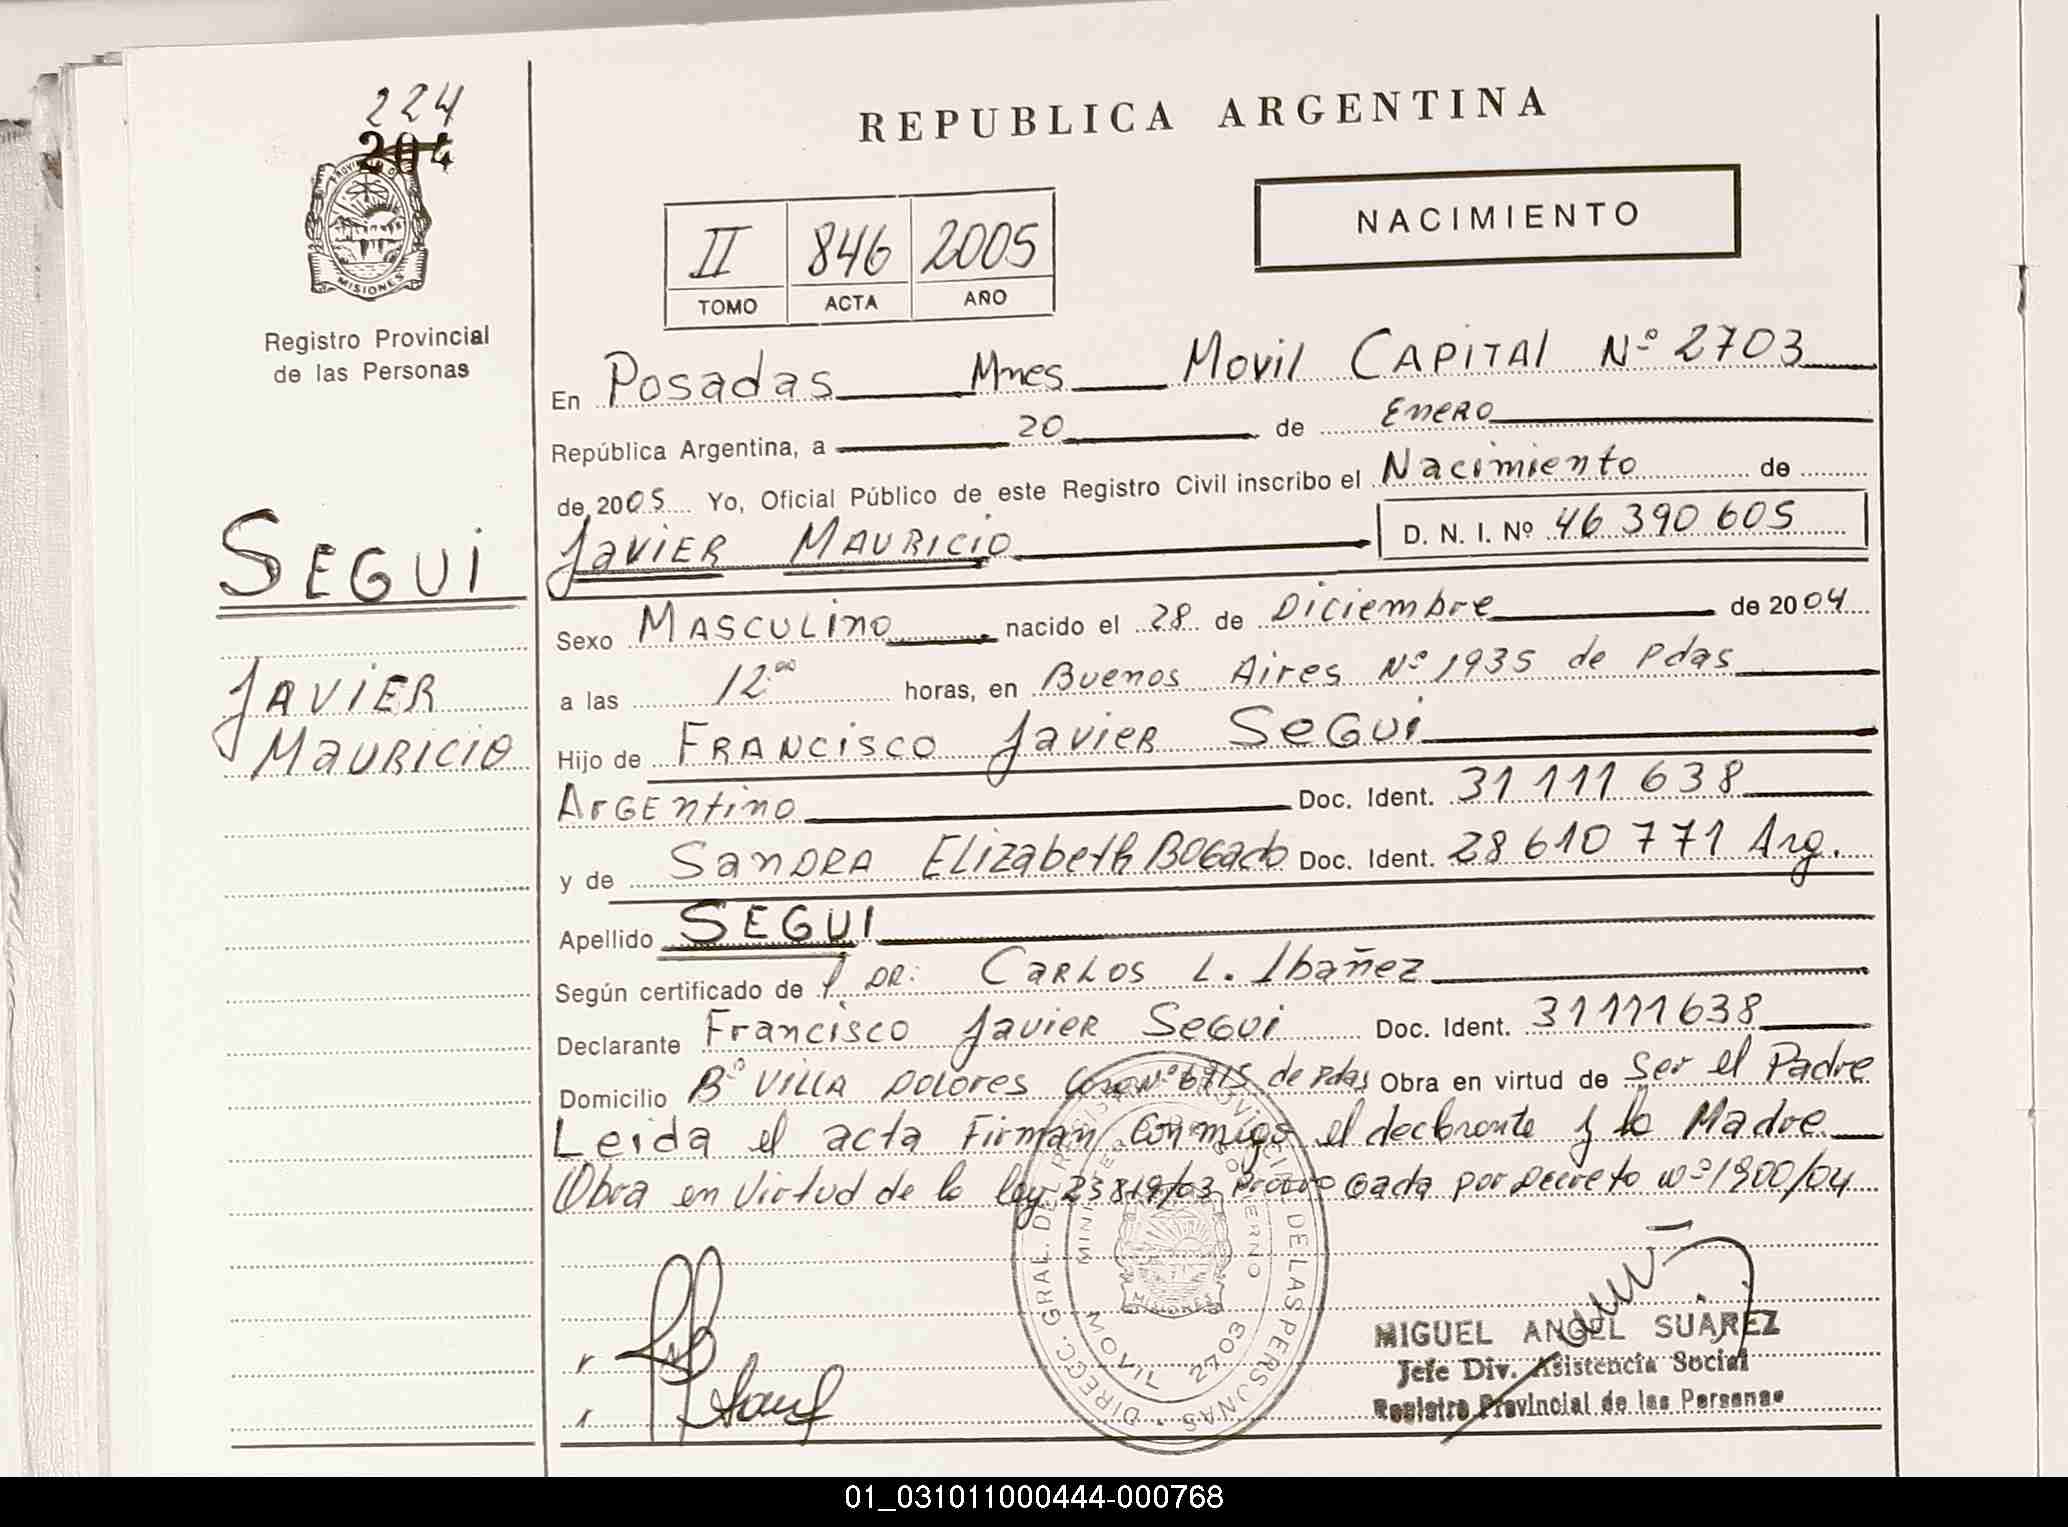 224
204
PROVINCIA DE
MISIONES
Registro Provincial
de las Personas
REPUBLICA ARGENTINA
NACIMIENTO
II 846 2005
TOMO ACTA AÑO
En Posadas Mnes Movil CAPITAl Nº 2703
República Argentina, a 20 de ENERO
de 2005 Yo, Oficial Público de este Registro Civil inscribo el Nacimiento de
JAVIER MAURICIO D. N. I. Nº 46 390 605
SEGUI
JAVIER
MAURICIO
Sexo MASCULINO nacido el 28 de Diciembre de 2004
a las 12 00 horas, en Buenos Aires Nº 1935 de Pdas
Hijo de FRANCISCO Javier SEGUI
ArGEntino Doc. Ident. 31 111 638
y de SanDRA Elizabeth BOGado Doc. Ident. 28 610 771 Arg.
Apellido SEGUI
Según certificado de DR: CARLOS L. Ibañez
Declarante Francisco Javier SEGUI Doc. Ident. 31111638
Domicilio Bº VILLA DOLORES Nº 6915 de Pdas Obra en virtud de Ser el Padre
Leida el acta Firman Conmigo el declarante y la Madre
Obra en virtud de la ley por Decreto Nº 1900/04
DIRECC. GRAL. DEL REGISTRO PROVINCIAL DE LAS PERSONAS
MINISTERIO DE GOBIERNO
MISIONES
MOVIL 2703
MIGUEL ANGEL SUAREZ
Jefe Div. Asistencia Social
Registro Provincial de las Personas
01_031011000444-000768